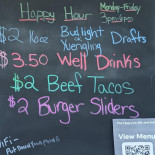 Happy Hour Monday-Friday
$2 16oz Bud light or Yuengling Drafts
$3.50 Well Drinks
$2 Beef Tacos
$2 Burger Sliders
View Menu